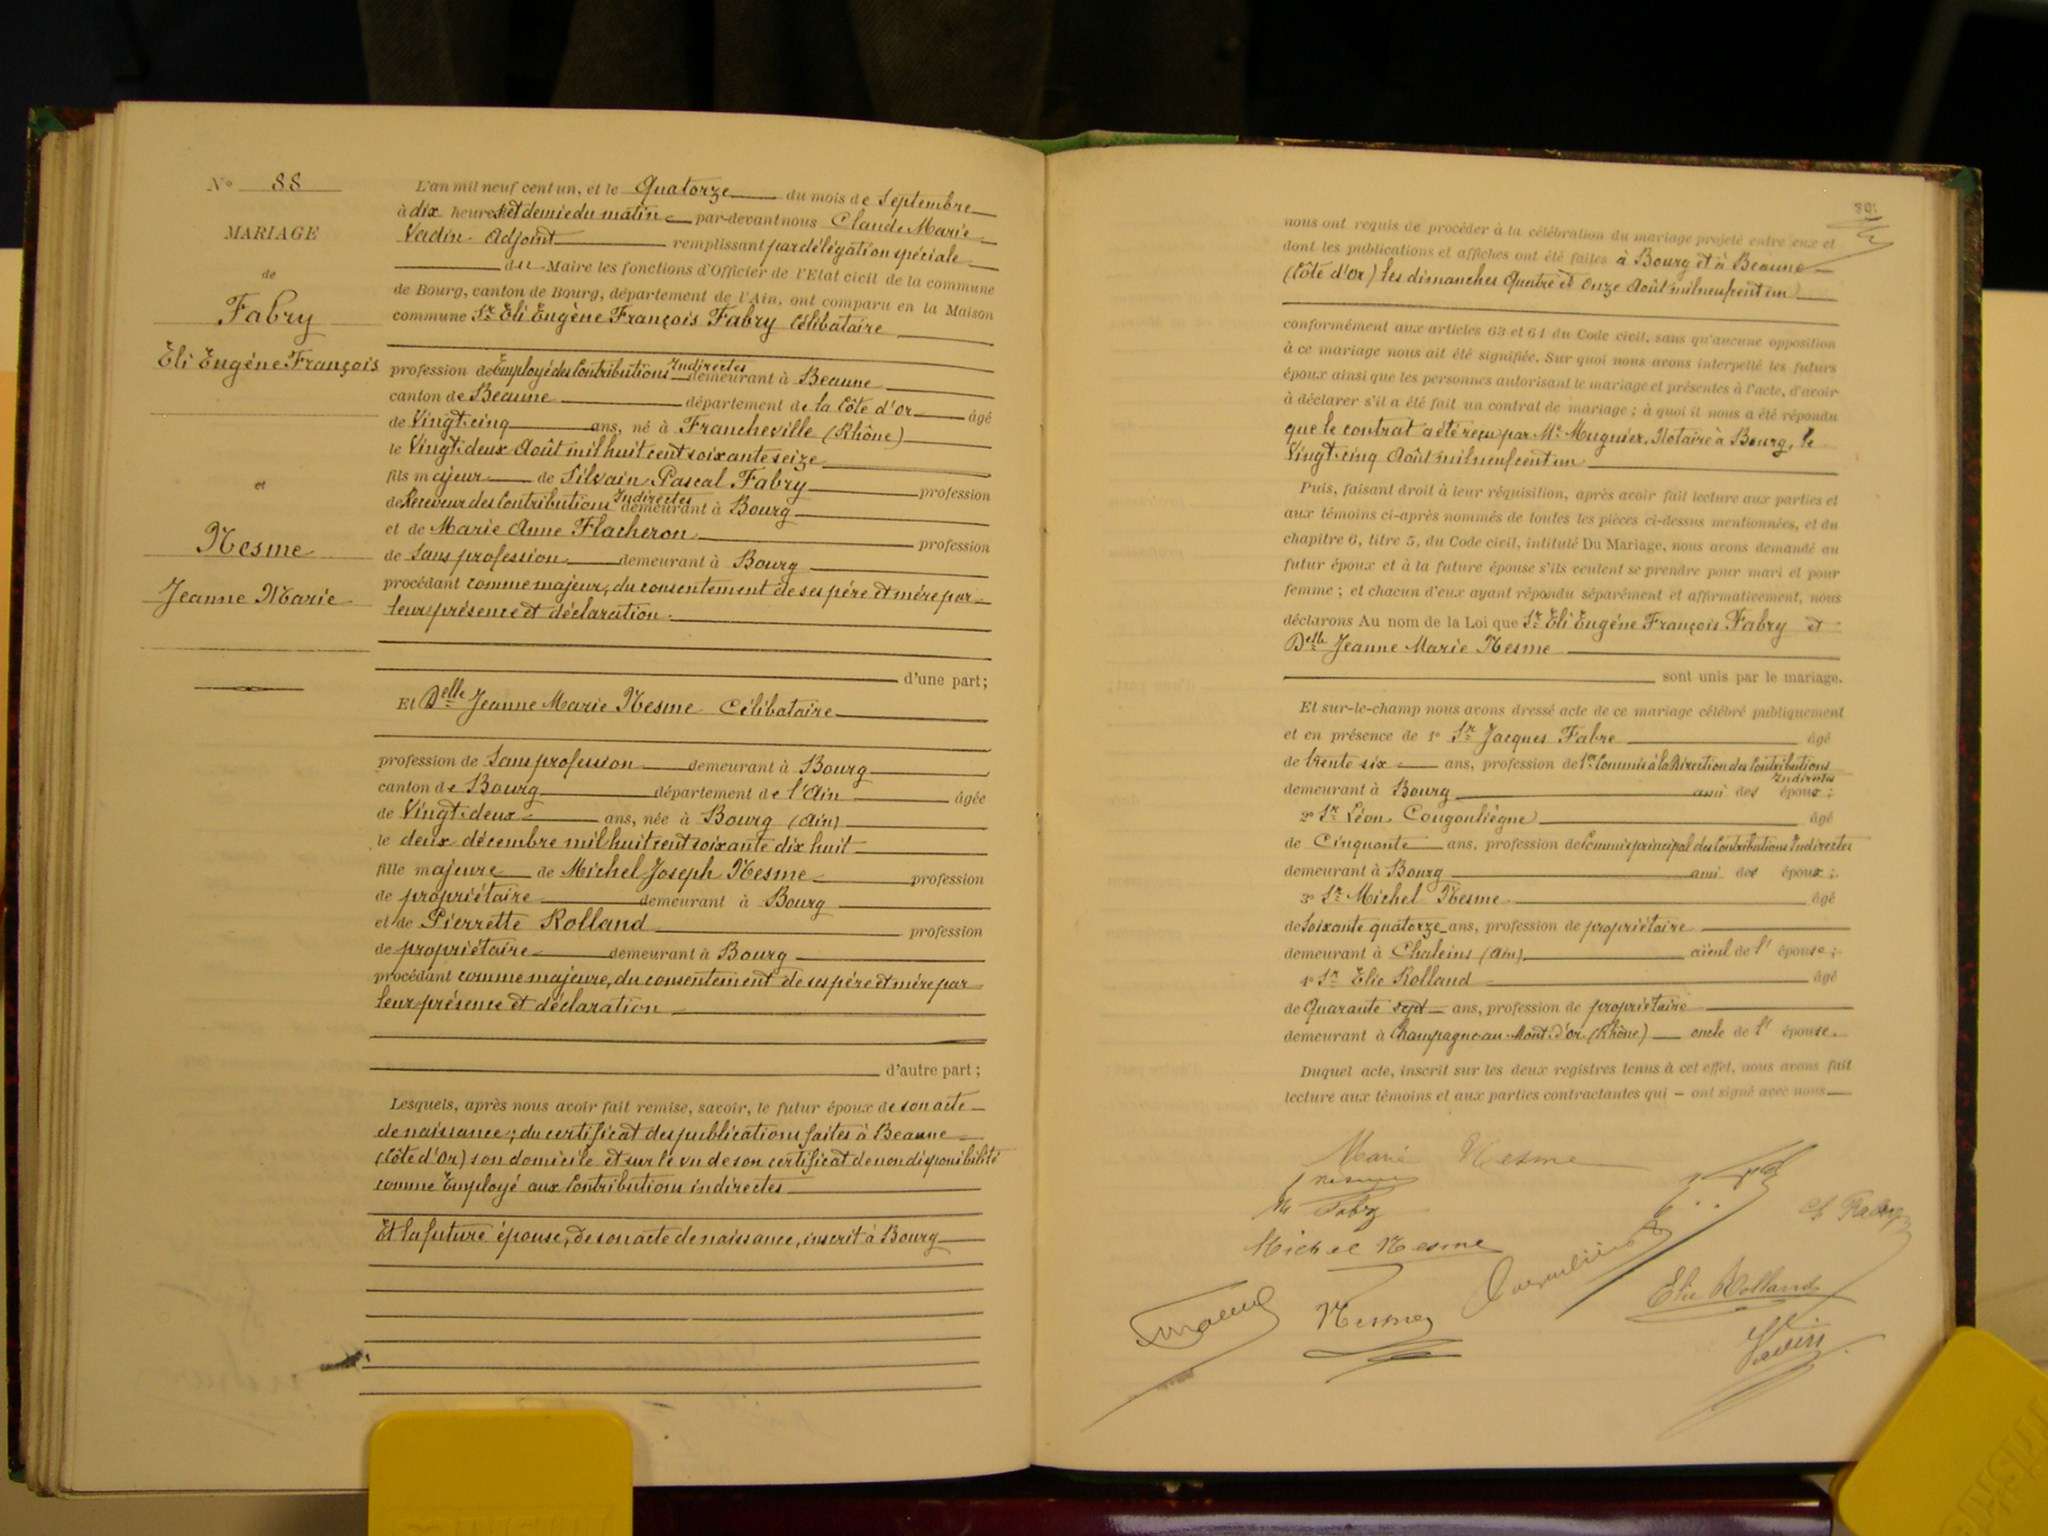 N° 88
MARIAGE
de
Fabry
Eli Eugène François
et
Nesme
Jeanne Marie
L'an mil neuf cent un, et le Quatorze du mois de Septembre
à dix heures et demie du matin par-devant nous Claude Marie
Vadin Adjoint remplissant par délégation spéciale
du Maire les fonctions d'Officier de l'Etat civil de la commune
de Bourg, canton de Bourg, département de l'Ain, ont comparu en la Maison
commune Sr Eli Eugène François Fabry Célibataire
profession de Employé des Contributions Indirectes demeurant à Beaune
canton de Beaune département de la Côte d'Or âgé
de Vingt-cinq ans, né à Francheville (Rhône)
le Vingt-deux Août mil huit cent soixante seize
fils majeur de Silvain Pascal Fabry profession
de Receveur des Contributions Indirectes demeurant à Bourg
et de Marie Anne Flacheron profession
de Sans profession demeurant à Bourg
procédant comme majeur, du consentement de ses père et mère par
leur présence et déclaration.
d'une part;
Et Delle Jeanne Marie Nesme Célibataire
profession de Sans profession demeurant à Bourg
canton de Bourg département de l'Ain âgée
de Vingt-deux ans, née à Bourg (Ain)
le deux décembre mil huit cent soixante dix huit
fille majeure de Michel Joseph Nesme profession
de propriétaire demeurant à Bourg
et de Pierrette Rolland profession
de propriétaire demeurant à Bourg
procédant comme majeure, du consentement de ses père et mère par
leur présence et déclaration
d'autre part;
Lesquels, après nous avoir fait remise, savoir, le futur époux de son acte
de naissance; du certificat des publications faites à Beaune
(Côte d'Or) son domicile et sur le vu de son certificat de non disponibilité
comme Employé aux Contributions indirectes
Et la future épouse, de son acte de naissance, inscrit à Bourg
nous ont requis de procéder à la célébration du mariage projeté entre eux et
dont les publications et affiches ont été faites à Bourg et à Beaune
(Côte d'Or) les dimanches Quatre et Onze Août mil neuf cent un
conformément aux articles 63 et 64 du Code civil, sans qu'aucune opposition
à ce mariage nous ait été signifiée. Sur quoi nous avons interpellé les futurs
époux ainsi que les personnes autorisant le mariage et présentes à l'acte, d'avoir
à déclarer s'il a été fait un contrat de mariage; à quoi il nous a été répondu
que le contrat a été reçu par Me Mugnier, Notaire à Bourg, le
Vingt-cinq Août mil neuf cent un
Puis, faisant droit à leur réquisition, après avoir fait lecture aux parties et
aux témoins ci-après nommés de toutes les pièces ci-dessus mentionnées, et du
chapitre 6, titre 5, du Code civil, intitulé Du Mariage, nous avons demandé au
futur époux et à la future épouse s'ils veulent se prendre pour mari et pour
femme; et chacun d'eux ayant répondu séparément et affirmativement, nous
déclarons Au nom de la Loi que Sr Eli Eugène François Fabry et
Delle Jeanne Marie Nesme
sont unis par le mariage.
Et sur-le-champ nous avons dressé acte de ce mariage célébré publiquement
et en présence de 1° Sr Jacques Fabre âgé
de trente six ans, profession de 1er Commis à la Direction des Contributions Indirectes
demeurant à Bourg ami des époux;
2° Sr Léon Cougouliègne âgé
de Cinquante ans, profession de Commis principal des Contributions Indirectes
demeurant à Bourg ami des époux;
3° Sr Michel Nesme âgé
de Soixante quatorze ans, profession de propriétaire
demeurant à Chaleins (Ain) aïeul de l'épouse;
4° Sr Elie Rolland âgé
de Quarante sept ans, profession de propriétaire
demeurant à Champagne-au-Mont-d'or (Rhône) oncle de l'épouse.
Duquel acte, inscrit sur les deux registres tenus à cet effet, nous avons fait
lecture aux témoins et aux parties contractantes qui ont signé avec nous
Marie Nesme
Fabry
Michel Nesme
Nesme
Elie Rolland
Vadin